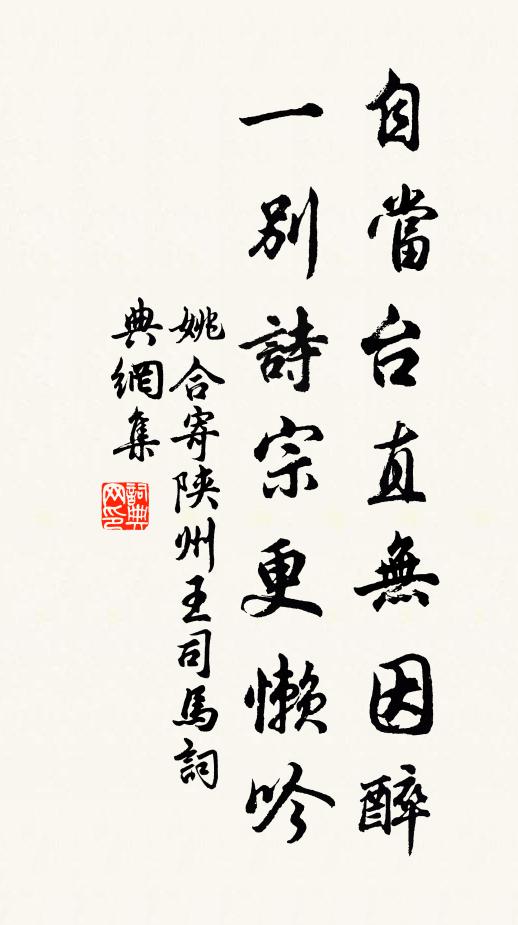 自當台直無因醉
一別詩宗更懶吟
姚合寄陝州王司馬詞
典網集
詞典
网印